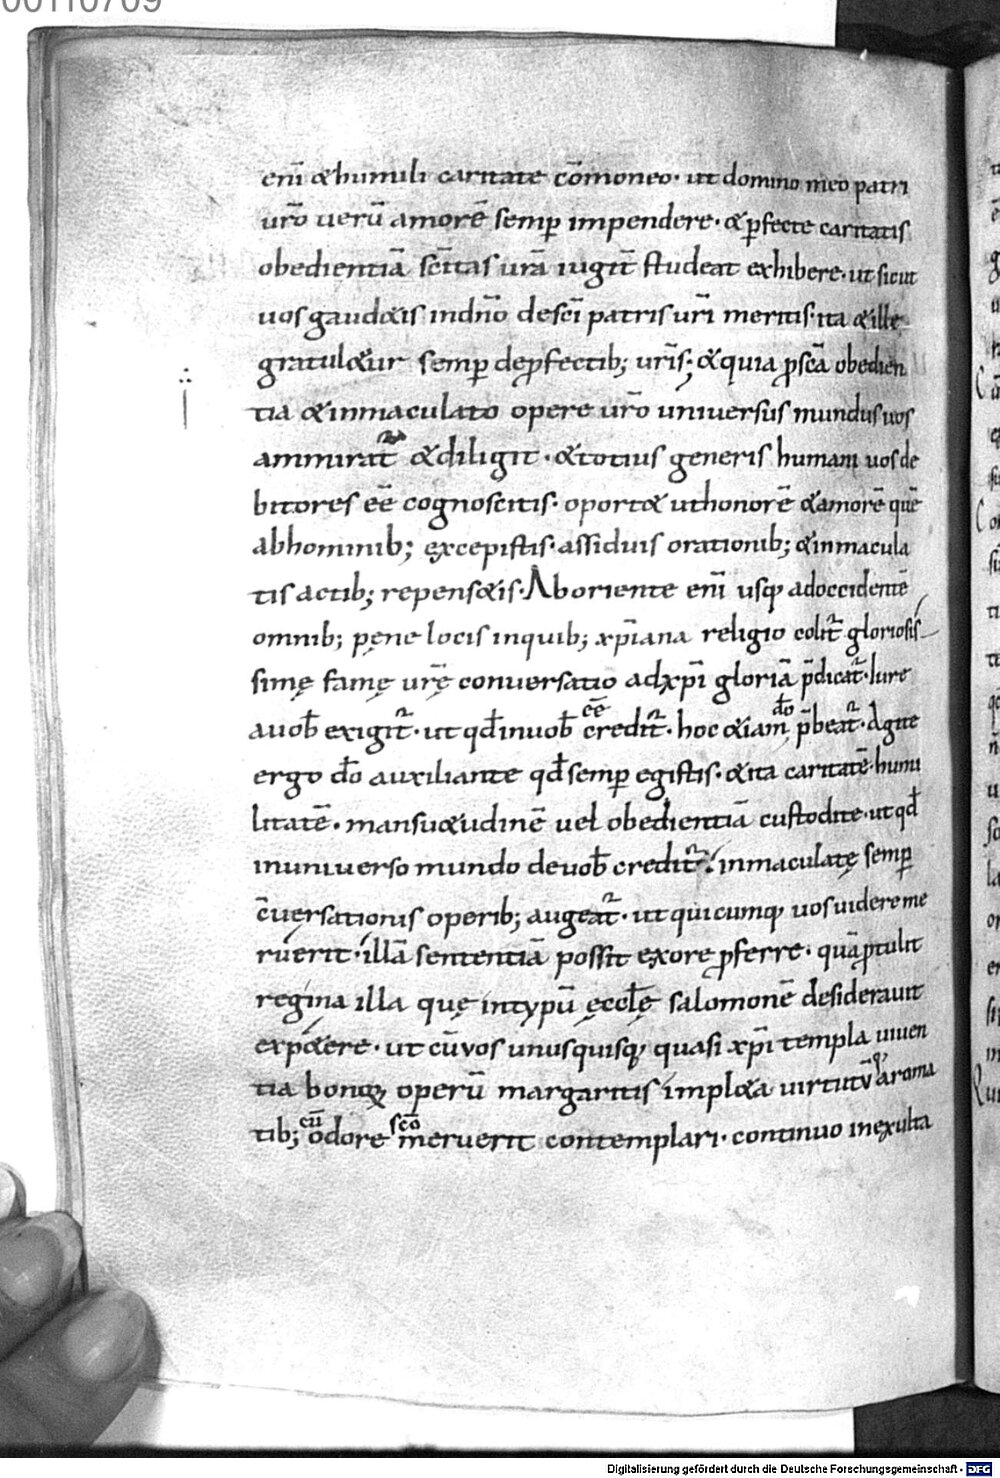 00110709
enī &humili caritate cōmoneo· ut domino meo patri
ur̄o uerū amorē semꝑ impendere· &ꝑfecte caritatis
obedientiā sc̄itas urā iugit̄ studeat exhibere· ut sicut
uos gaud&is indn̄o desc̄i patris ur̄i meritis· ita &ille
gratul&ur semꝑ deꝓfectib; ur̄is; &quia ꝓscā obedien
tia &inmaculato opere ur̄o uniuersus mundus uos
ammirat᷑ &diligit· &totius generis humani uos de
bitores eē cognoscitis· oport& uthonorē &amorē quē
abhominib; excepistis· assiduis orationib; &inmacula
tis actib; repens&is· Aboriente enī usqꝫ adoccidentē
omnib; pęne locis inquib; xp̄iana religio colit᷑ gloriosis
simę famę ur̄ę conuersatio adxp̄i gloriā p̄dicat᷑· Iure
auob̄ exigit᷑· ut qd̄ inuob̄ eē credit᷑· hoc &iam dō p̄beat᷑· Agite
ergo dō auxiliante qd̄ semꝑ egistis· &ita caritatē· humi
litatē· mansu&udinē uel obedientiā custodite· ut qd̄
inuniuerso mundo deuob̄ credit᷑· inmaculatę semꝑ
c̄uersationis operib; augeat᷑· ut quicumqꝫ uos uidere me
ruerit· illā sententiā possit exore ꝓferre· quā ꝓtulit
regina illa quę intypū ęccl̄ę salomonē desiderauit
exp&ere· ut cū uos unusquisqꝫ quasi xp̄i templa uiuen
tia bonoꝝ operū margaritis impl&a uirtutūqꝫ aroma
tib; cū odore scō meruerit contemplari· continuo inexulta
Digitalisierung gefördert durch die Deutsche Forschungsgemeinschaft - DFG